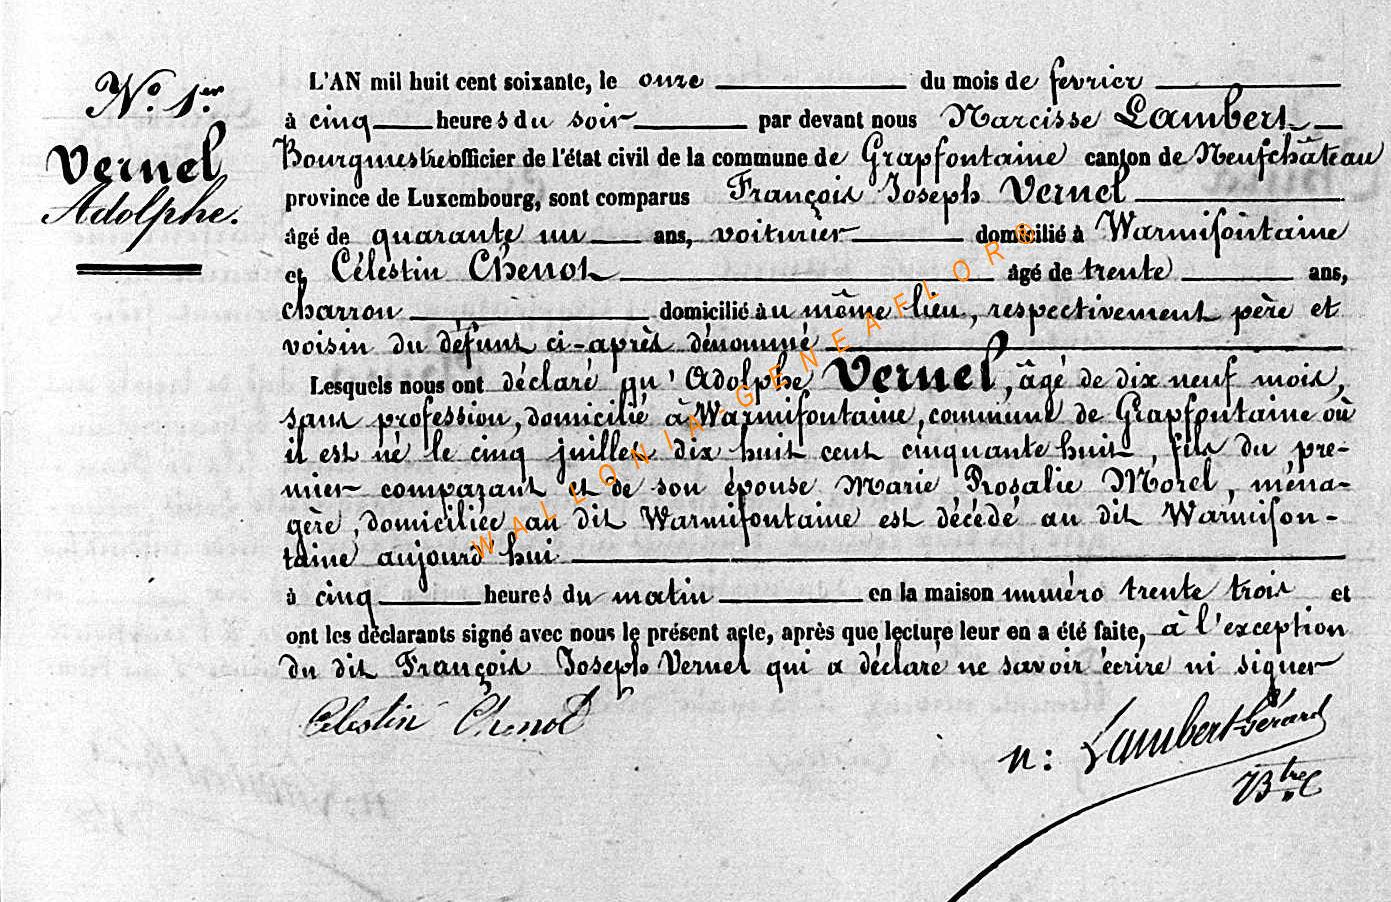 N.º 1.er
Vernel
Adolphe.
L'AN mil huit cent soixante, le onze du mois de fevrier
à cinq heures du soir par devant nous Narcisse Lambert
Bourgmestre officier de l'état civil de la commune de Grapfontaine canton de Neufchâteau
province de Luxembourg, sont comparus François Joseph Vernel
âgé de quarante un ans, voiturier domicilié à Warmifontaine
et Célestin Chenot âgé de trente ans,
charron domicilié au même lieu, respectivement père et
voisin du défunt ci-après dénommé
Lesquels nous ont déclaré qu'Adolphe Vernel, âgé de dix neuf mois,
sans profession, domicilié à Warmifontaine, commune de Grapfontaine où
il est né le cinq juillet dix huit cent cinquante huit, fils du pre-
mier comparant et de son épouse Marie Rosalie Morel, ména-
gère, domiciliée au dit Warmifontaine est décédé au dit Warmifon-
taine aujourd'hui
à cinq heures du matin en la maison numéro trente trois et
ont les déclarants signé avec nous le présent acte, après que lecture leur en a été faite, à l'exception
du dit François Joseph Vernel qui a déclaré ne savoir écrire ni signer
Célestin Chenot
n: Lambert-Gérard
Btre
WALLONIA-GENEAFLOR®